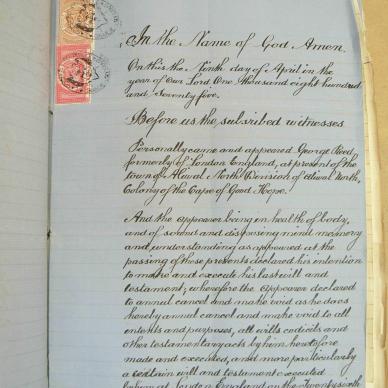 In the Name of God Amen.
On this the Ninth day of April in the
year of Our Lord One Thousand eight hundred
and Seventy five.
Before us the subscribed witnesses
Personally came and appeared George Reed,
formerly of London England, at present of the
town of Aliwal North Division of Aliwal North,
Colony of the Cape of Good Hope.
And the appearer being in health of body,
and of sound and disposing mind memory
and understanding as appeared at the
passing of these presents declared his intention
to make and execute his last will and
testament; wherefore the appearer declared
to annul cancel and make void as he does
hereby annul cancel and make void to all
intents and purposes, all wills codicils and
other testamentary acts by him heretofore
made and executed, and more particularly
a certain will and testament executed
by him at London England on the Twenty sixth